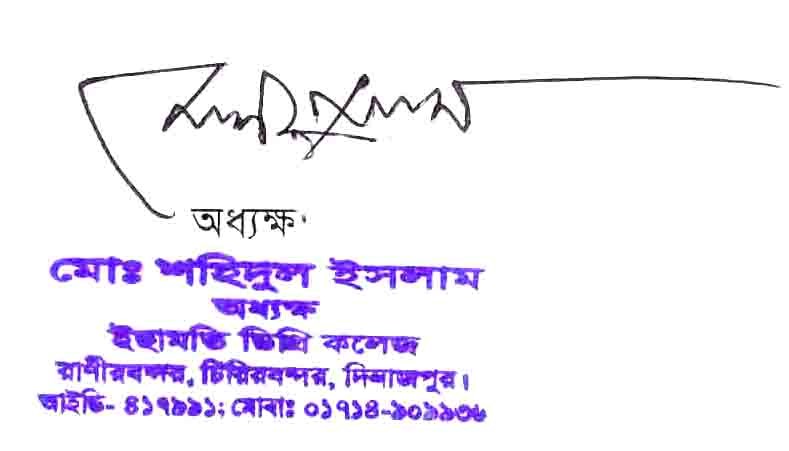 অধ্যক্ষ
মোঃ শহিদুল ইসলাম
অধ্যক্ষ
ইছামতি ডিগ্রি কলেজ
রাণীরবন্দর, চিরিরবন্দর, দিনাজপুর।
আইডি- ৪১৭৯৯১; মোবাঃ ০১৭১৪-৯০৯৯৩৬